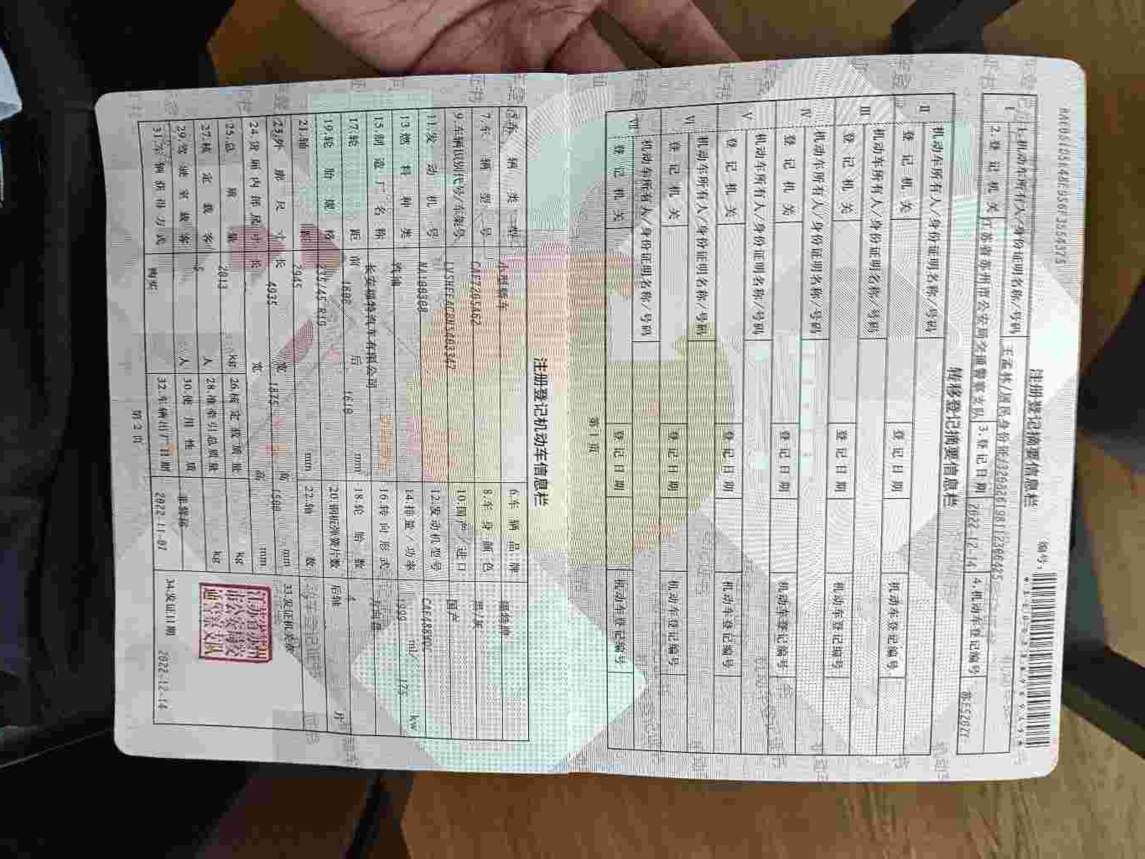 注册登记摘要信息栏
编号:
Ⅰ
1.机动车所有人/身份证明名称/号码
王孟林/居民身份证/
2.登记机关
江苏省苏州市公安局交通警察支队
3.登记日期
2022-12-14
4.机动车登记编号
转移登记摘要信息栏
Ⅱ
机动车所有人/身份证明名称/号码
登记机关
登记日期
机动车登记编号
Ⅲ
机动车所有人/身份证明名称/号码
登记机关
登记日期
机动车登记编号
Ⅳ
机动车所有人/身份证明名称/号码
登记机关
登记日期
机动车登记编号
Ⅴ
机动车所有人/身份证明名称/号码
登记机关
登记日期
机动车登记编号
Ⅵ
机动车所有人/身份证明名称/号码
登记机关
登记日期
机动车登记编号
Ⅶ
机动车所有人/身份证明名称/号码
登记机关
登记日期
机动车登记编号
第1页
注册登记机动车信息栏
5.车辆类型 小型轿车 6.车辆品牌 福特牌
7.车辆型号 8.车身颜色 黑/灰
9.车辆识别代号/车架号 10.国产/进口 国产
11.发动机号 12.发动机型号
13.燃料种类 汽油 14.排量/功率 1999 ml/ 175 kw
15.制造厂名称 长安福特汽车有限公司 16.转向形式 方向盘
17.轮距 前 1600 后 1610 mm 18.轮胎数 4
19.轮胎规格 235/45 R19 20.钢板弹簧片数 后轴 片
21.轴距 2945 mm 22.轴数
23.外廓尺寸 长 4935 宽 1875 高 1500 mm
24.货厢内部尺寸 长 宽 高 mm
25.总质量 2013 kg 26.核定载质量 kg
27.核定载客 5 人 28.准牵引总质量 kg
29.驾驶室载客 人 30.使用性质 非营运
31.车辆获得方式 购买 32.车辆出厂日期 2022-11-07
33.发证机关章
江苏省苏州市公安局交通警察支队
34.发证日期 2022-12-14
第2页